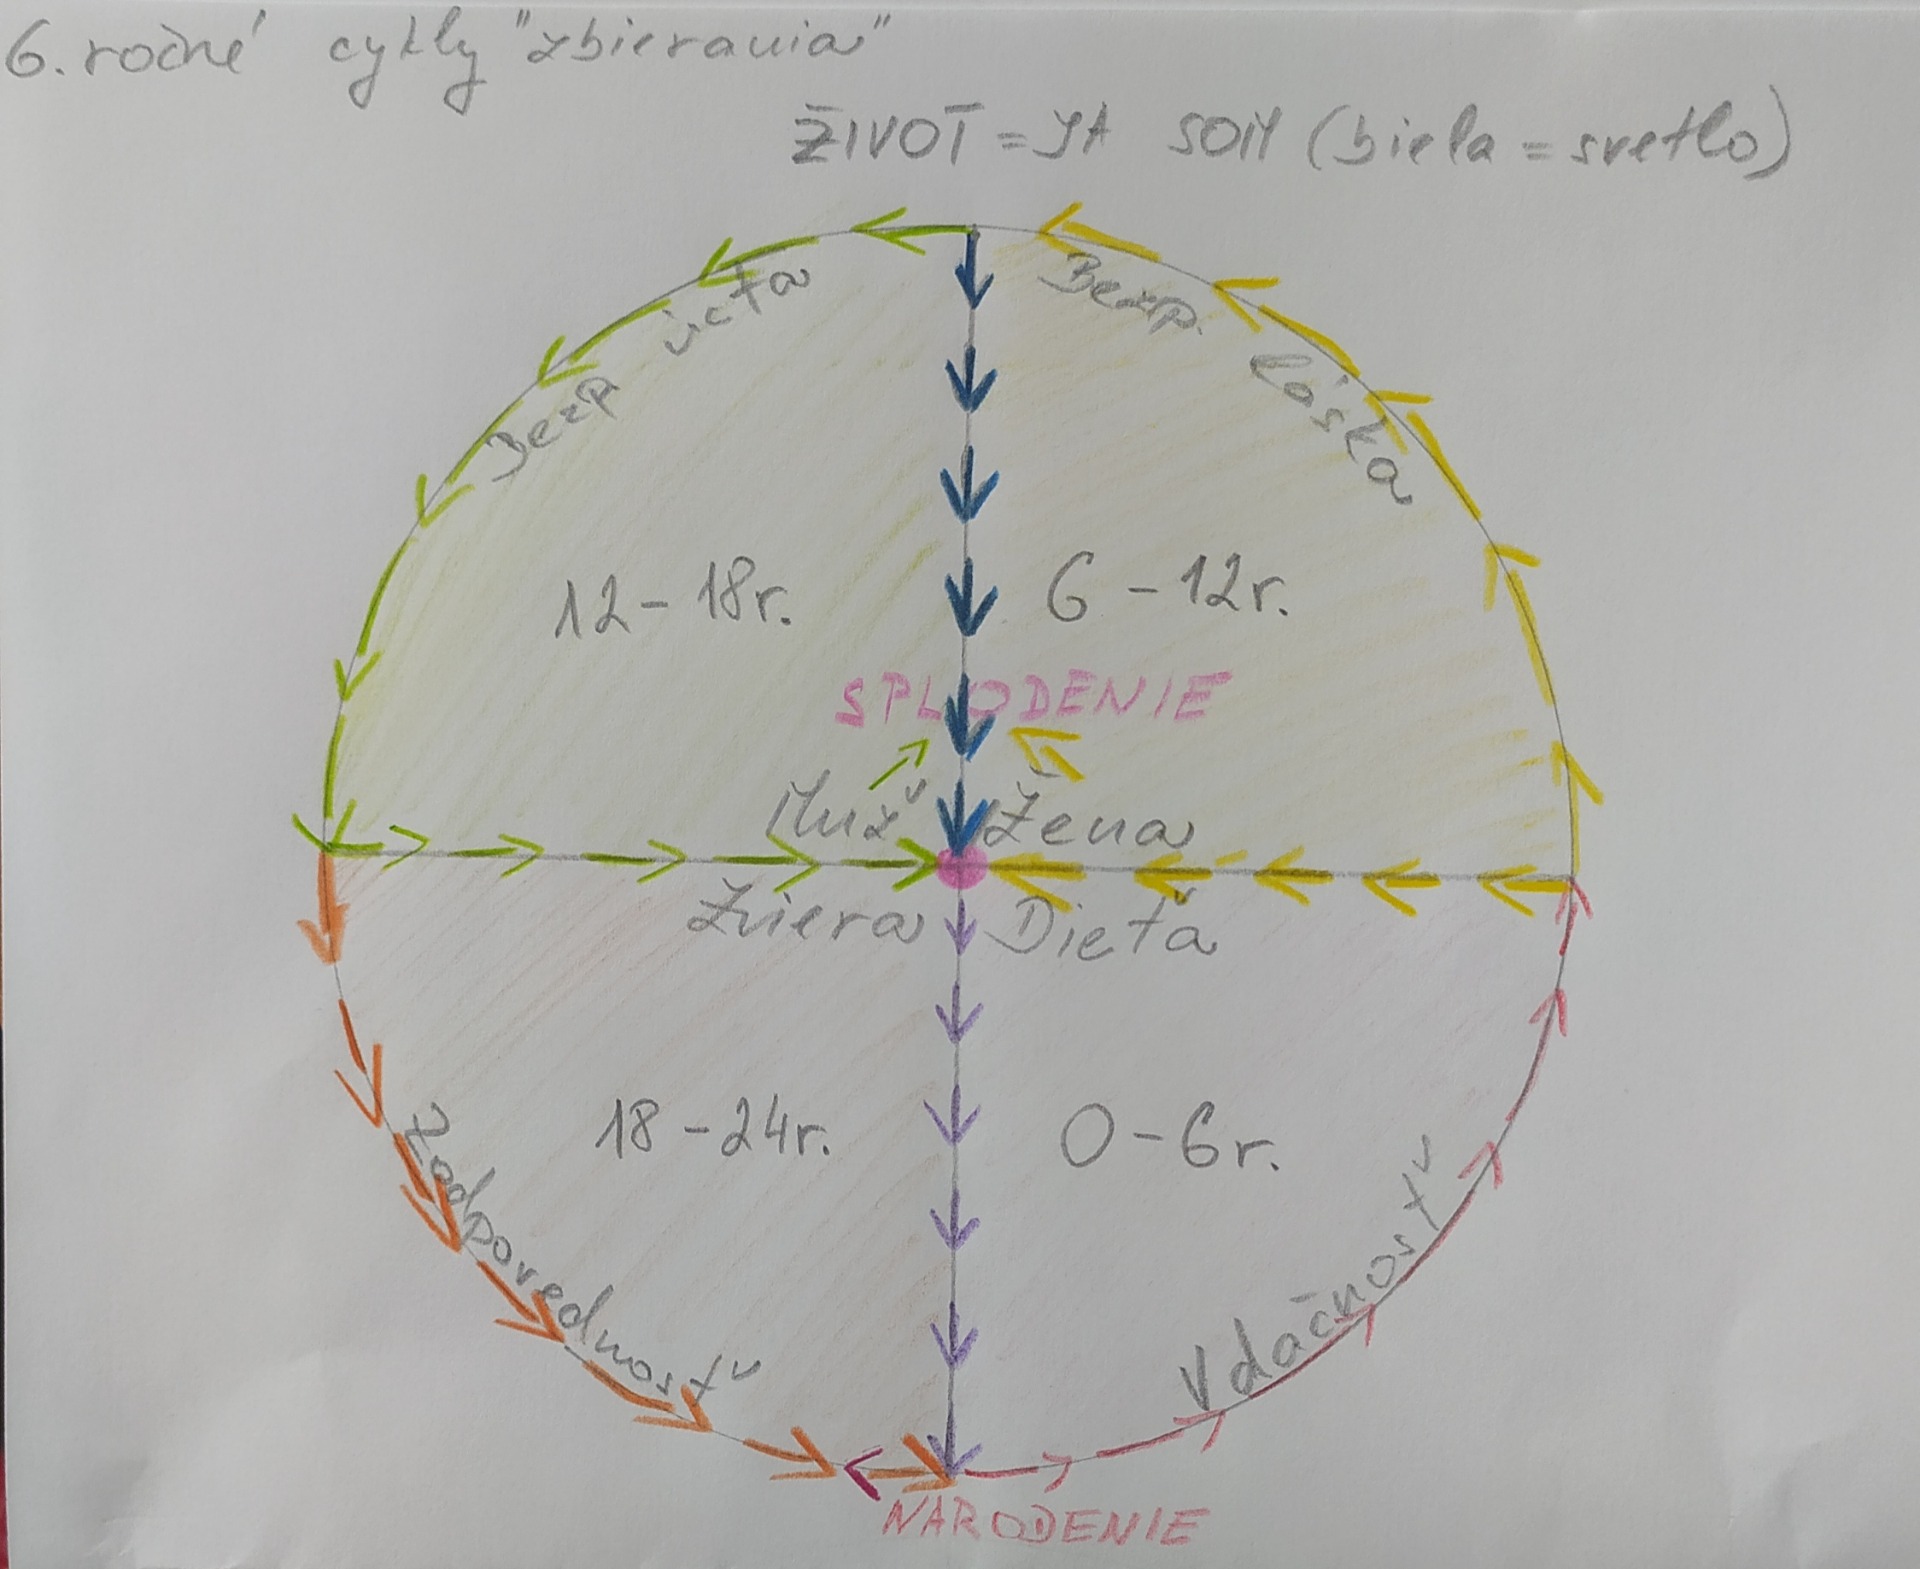 6. ročné cykly "zbierania"
ŽIVOT = JA SOM (biela = svetlo)
Bezp úcta
Bezp. láska
12 - 18r.
6 - 12r.
SPLODENIE
Muž
Žena
Zviera
Dieťa
18 - 24r.
0 - 6r.
Zodpovednosť
Vdačnosť
NARODENIE